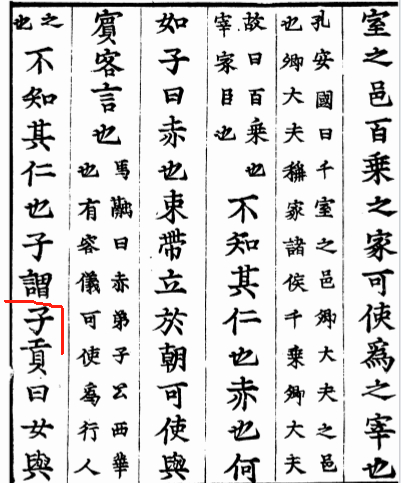 室之邑百乗之家可使爲之宰也
孔安國曰千室之邑卿大夫之邑
也卿大夫稱家諸侯千乗卿大夫
故曰百乗也
宰家臣也
不知其仁也赤也何
如子曰赤也束帶立於朝可使與
賓客言也
馬融曰赤弟子公西華
也有容儀可使爲行人
之
也
不知其仁也子謂子貢曰女與